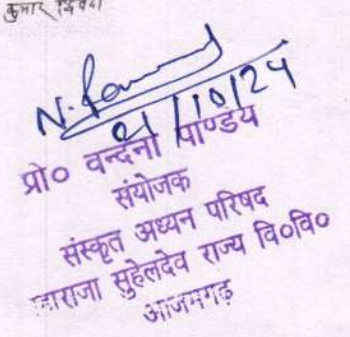 कुमार
21/10/24
प्रो० वन्दना पाण्डेय
संयोजक
संस्कृत अध्यन परिषद
महाराजा सुहेलदेव राज्य वि०वि०
आजमगढ़